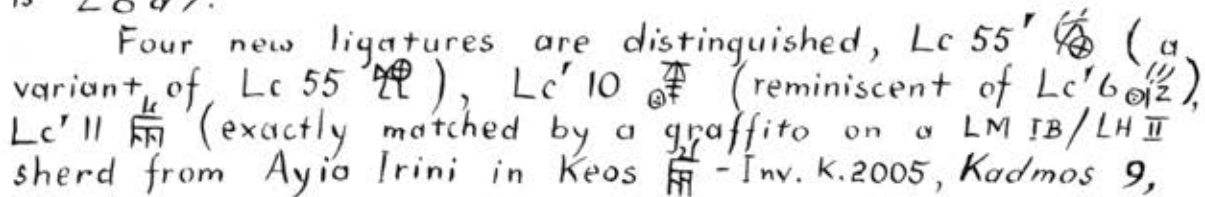 Four new ligatures are distinguished, Lc 55' (a
variant of Lc 55 ), Lc' 10 (reminiscent of Lc' 6 ),
Lc' 11 (exactly matched by a graffito on a LM IB/LH II
sherd from Ayia Irini in Keos - Inv. K.2005, Kadmos 9,